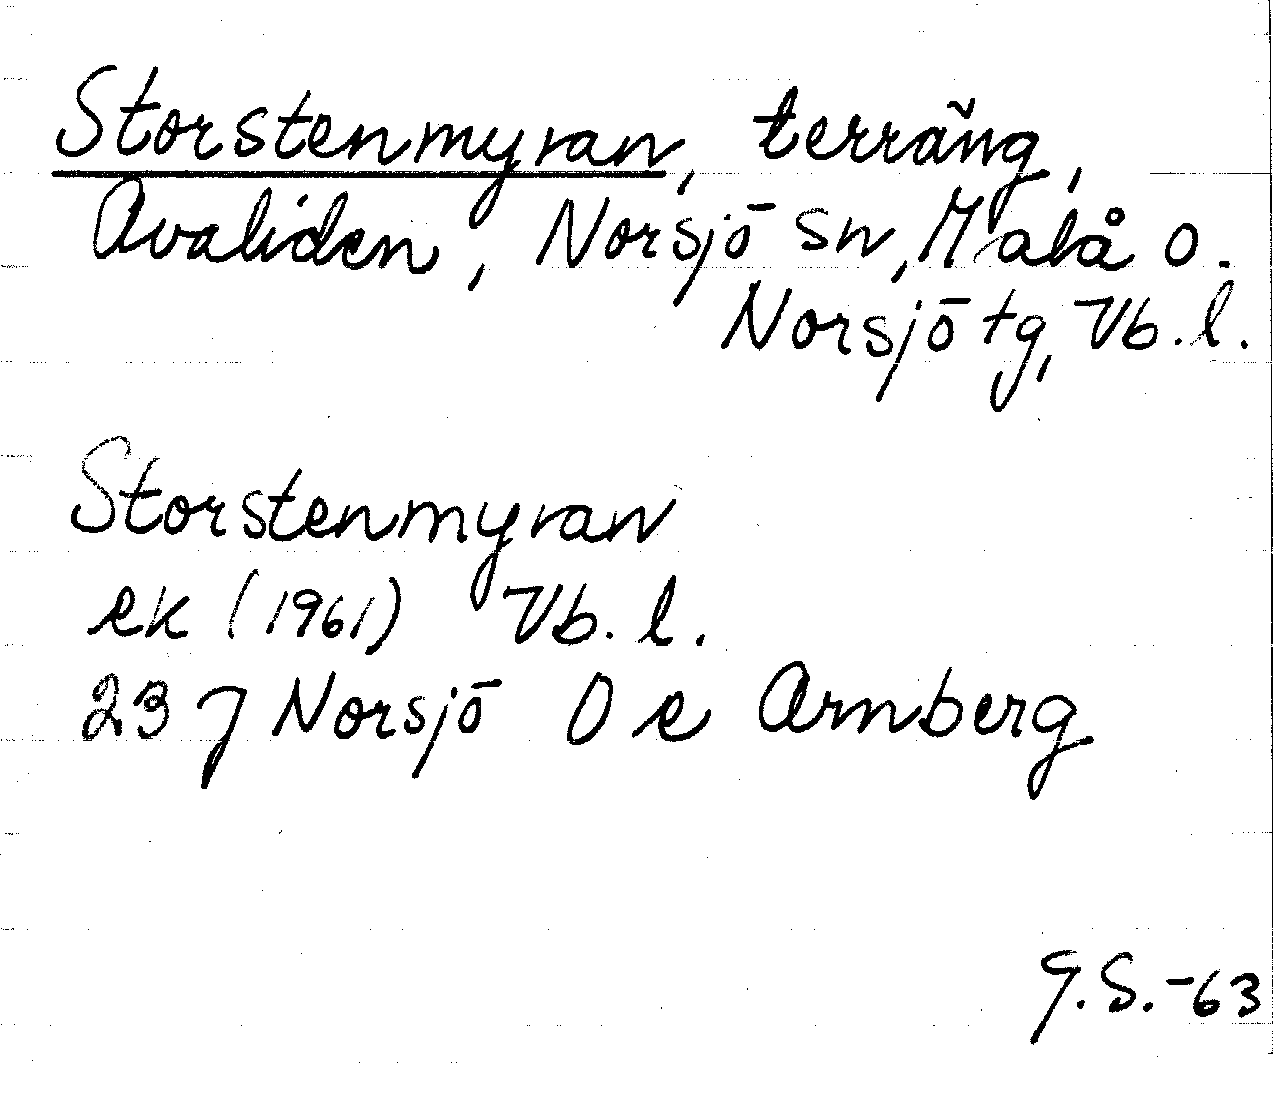 Storstenmyran, terräng,
Avaliden, Norsjö sn, Malå o.
Norsjö tg, Vb. l.
Storstenmyran
ek (1961) Vb. l.
23 J Norsjö O e Armberg
G.S.-63